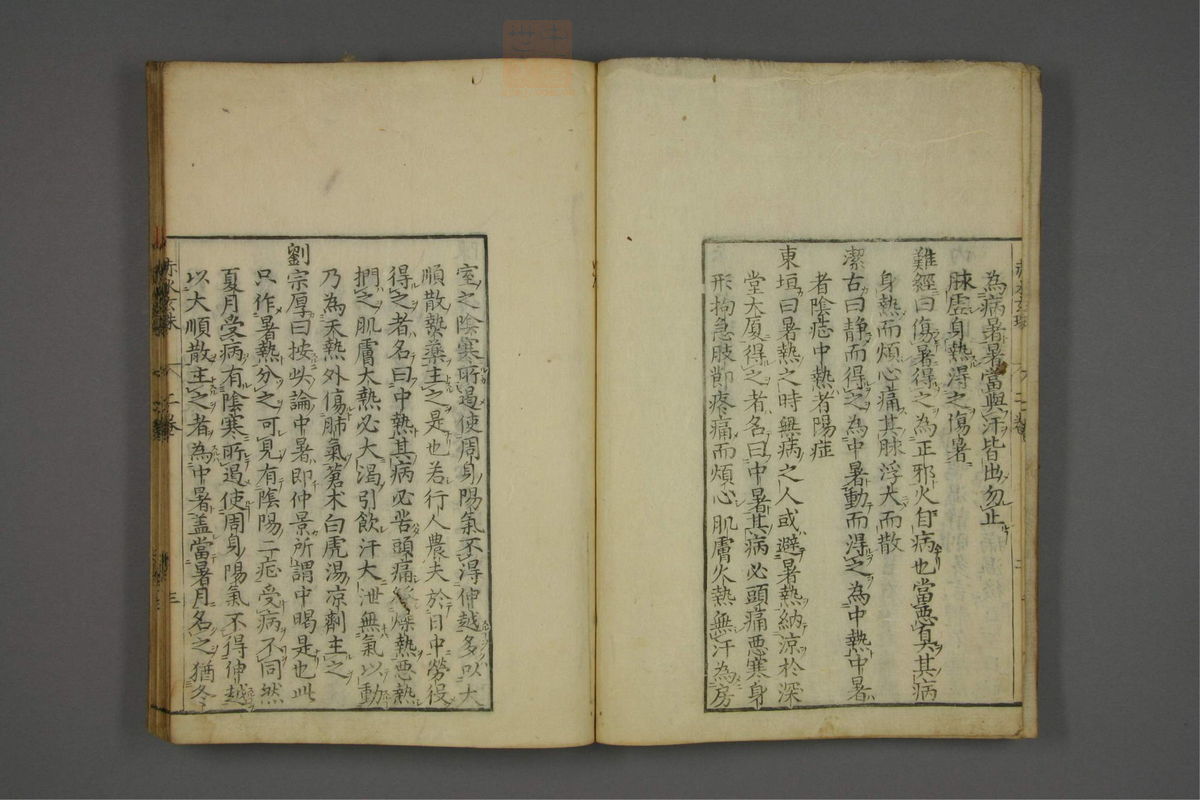 為病暑暑當與汗皆出勿止
脉虚身熱得之傷暑
難經曰傷暑得之為正邪火自病也當惡臭其病
身熱而煩心痛其脉浮大而散
潔古曰静而得之為中暑動而得之為中熱中暑
者陰症中熱者陽症
東垣曰暑熱之時無病之人或避暑熱納凉於深
堂大厦得之者名曰中暑其病必頭痛惡寒身
形拘急肢節疼痛而煩心肌膚火熱無汗為房
室之陰寒所遏使周身陽氣不得伸越多以大
順散熱藥主之是也若行人農夫於日中勞役
得之者名曰中熱其病必苦頭痛燥熱惡熱
捫之肌膚大熱必大渇引飲汗大泄無氣以動
乃為天熱外傷肺氣蒼术白虎湯凉劑主之
劉宗厚曰按此論中暑即仲景所謂中暍是也此
只作暑熱分之可見有陰陽二症受病不同然
夏月受病有陰寒所遏使周身陽氣不得伸越
以大順散主之者為中暑盖當暑月名之猶冬
赤水玄珠
二卷
三